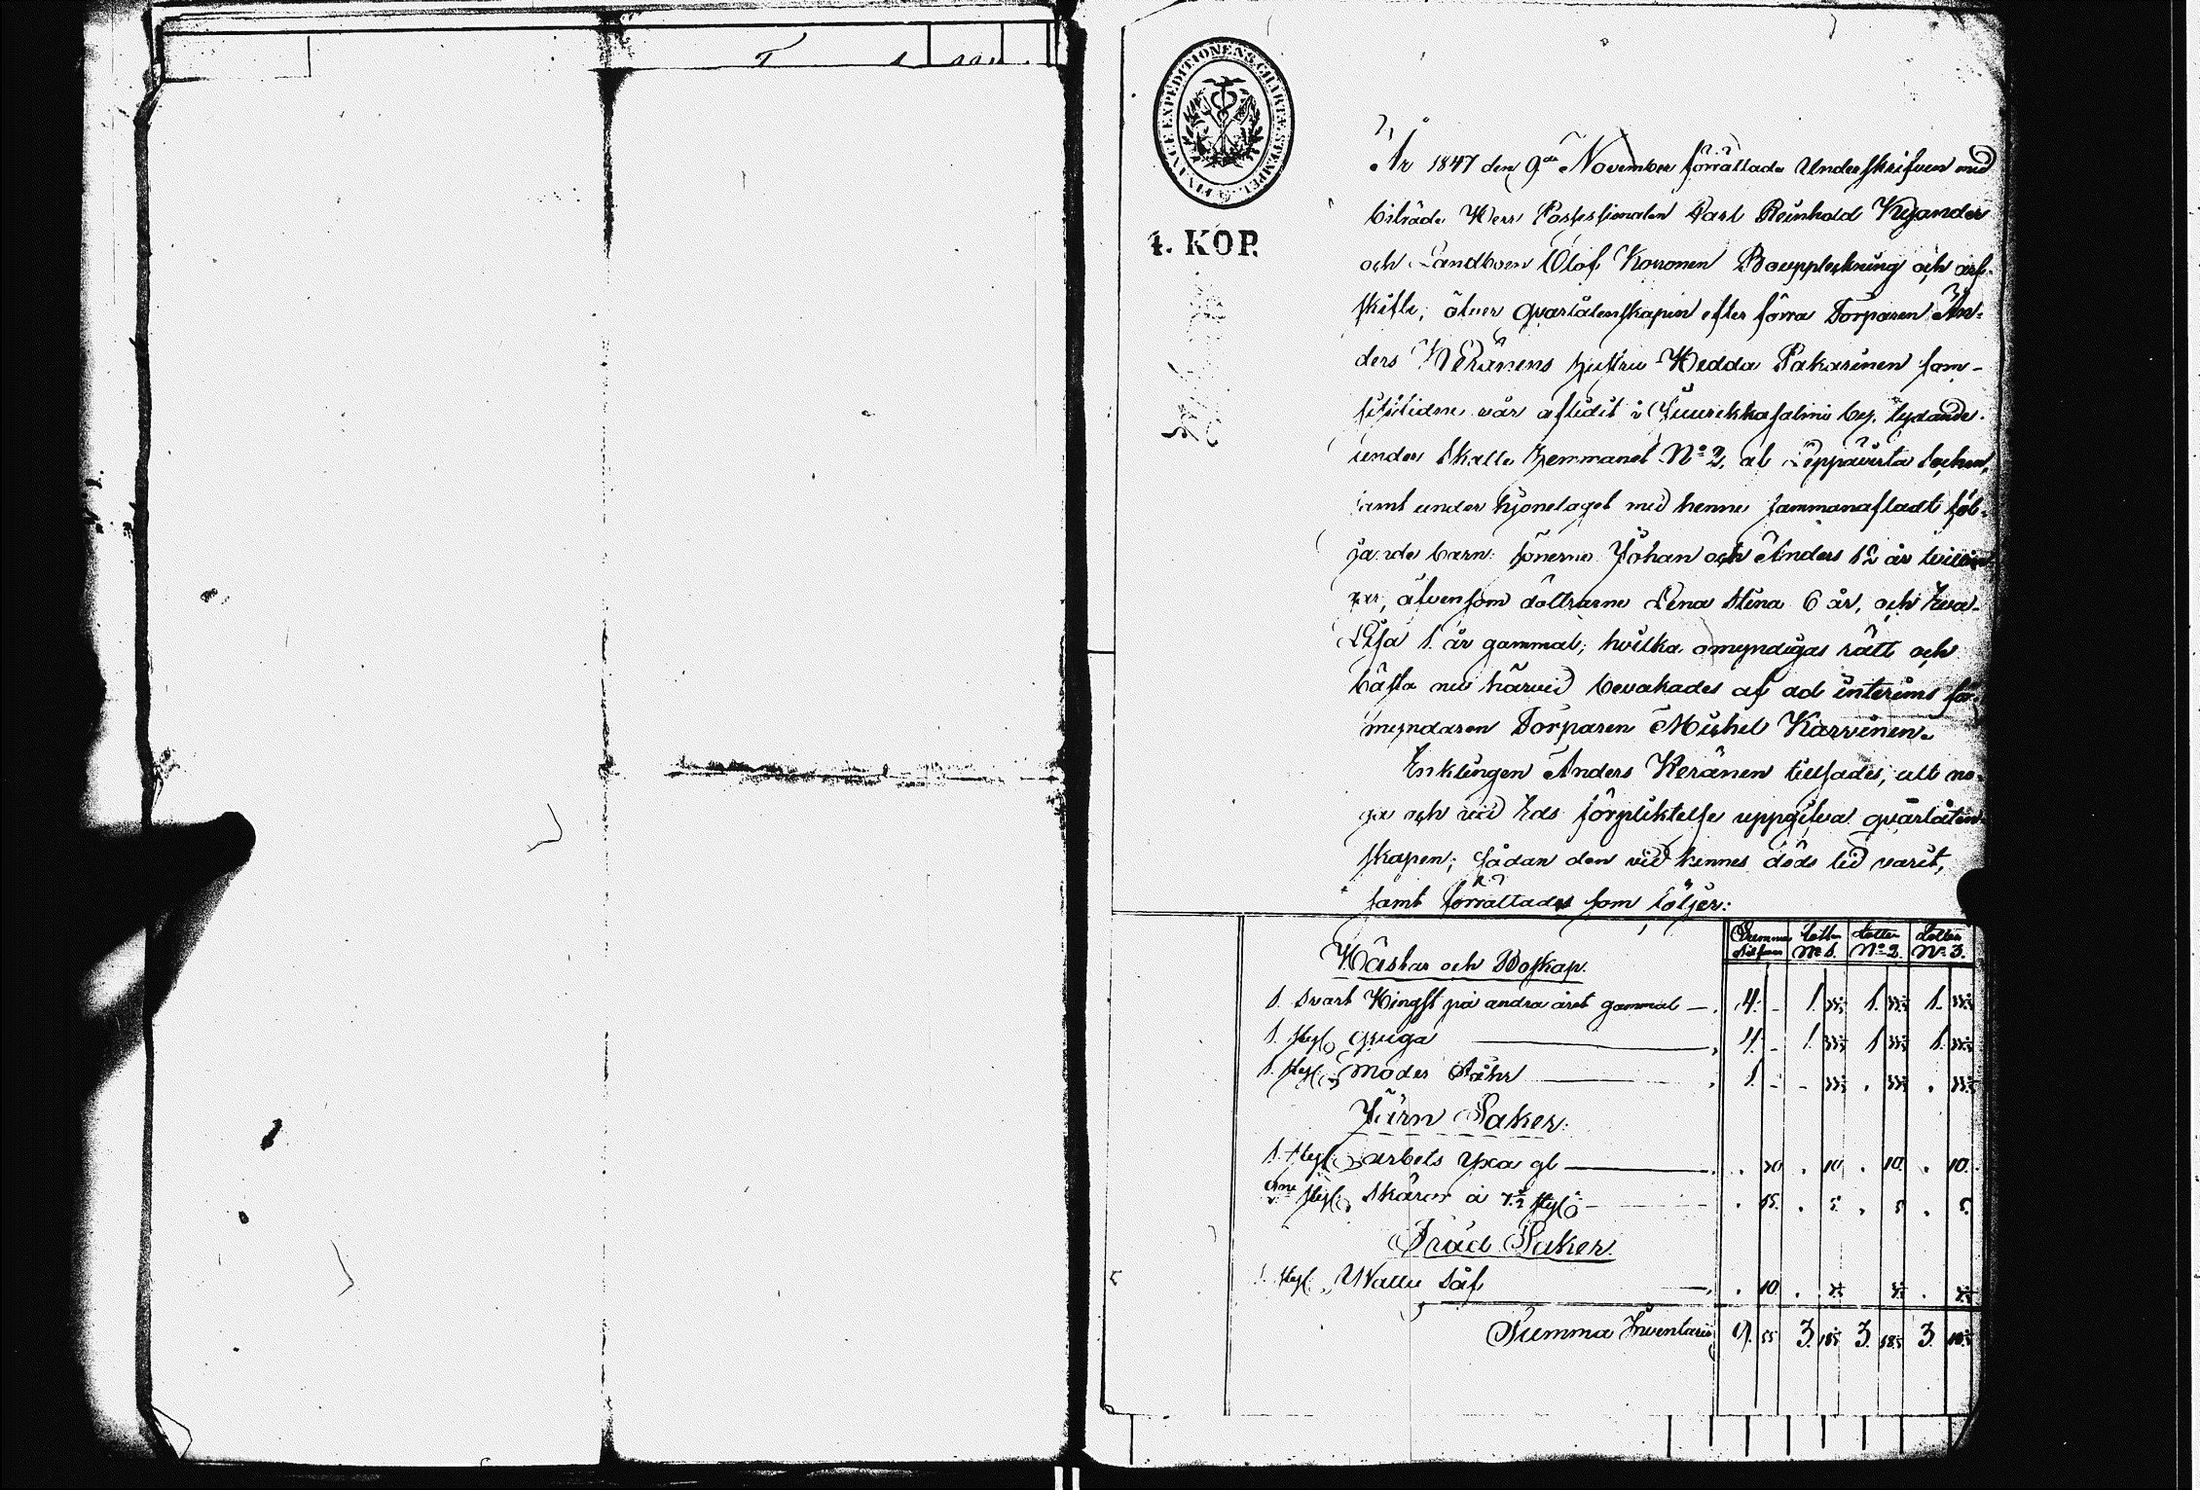 FINANCE EXPEDITIONENS CHARTE STEMPEL
4. KOP.
År 1847 den 9de November förrättade Underskrifven med
biträde Herr Possessionaten Carl Reinhold Kyander
och Landboen Olof Korronen Bouppteckning och arf-
skifte, öfver qvarlåtenskapen efter förra Torparen An-
ders Keränens hustru Hedda Pakarinen som
aflidit i Suurekkasalmi by, lydande
under Skatte hemmanet No 2, af Leppävirta Sochen,
samt under hjonelaget med henne sammanafladt föl-
jande barn: sönerne Johan och Anders 12 år
äfvensom döttrarne Lena Stina 6 år, och Eva
Lisa 1. år gammal; hvilka omyndigas rätt och
bästa nu härvid bevakades af ad interims för-
myndaren Torparen Michel Karvinen.
Enklingen Anders Keränen tillsades, att no-
ga och vid Eds förpliktelse uppgifva qvarlåten-
skapen; sådan den vid hennes döds tid varit,
samt förrättades som följer:
Summa Silfver Lotten No 1. Lotten No 2. Lotten No 3.
Hästar och Boskap.
1. Svart Hingst på andra året gammal — 4. - 1. 1. 1.
1. styck qviga — 4. - 1. 1. 1.
1. styck moder Fåhr — 1. - - . .
Järn Saker.
1. styck arbets yxa gl — . 30 . 10 . 10. . 10.
styck Skäror à — . 15. . 5. . 5 . 5.
Träd Saker.
1. styck — . 10. . . .
Summa Inventarii 9. 55 3. 3. 3.